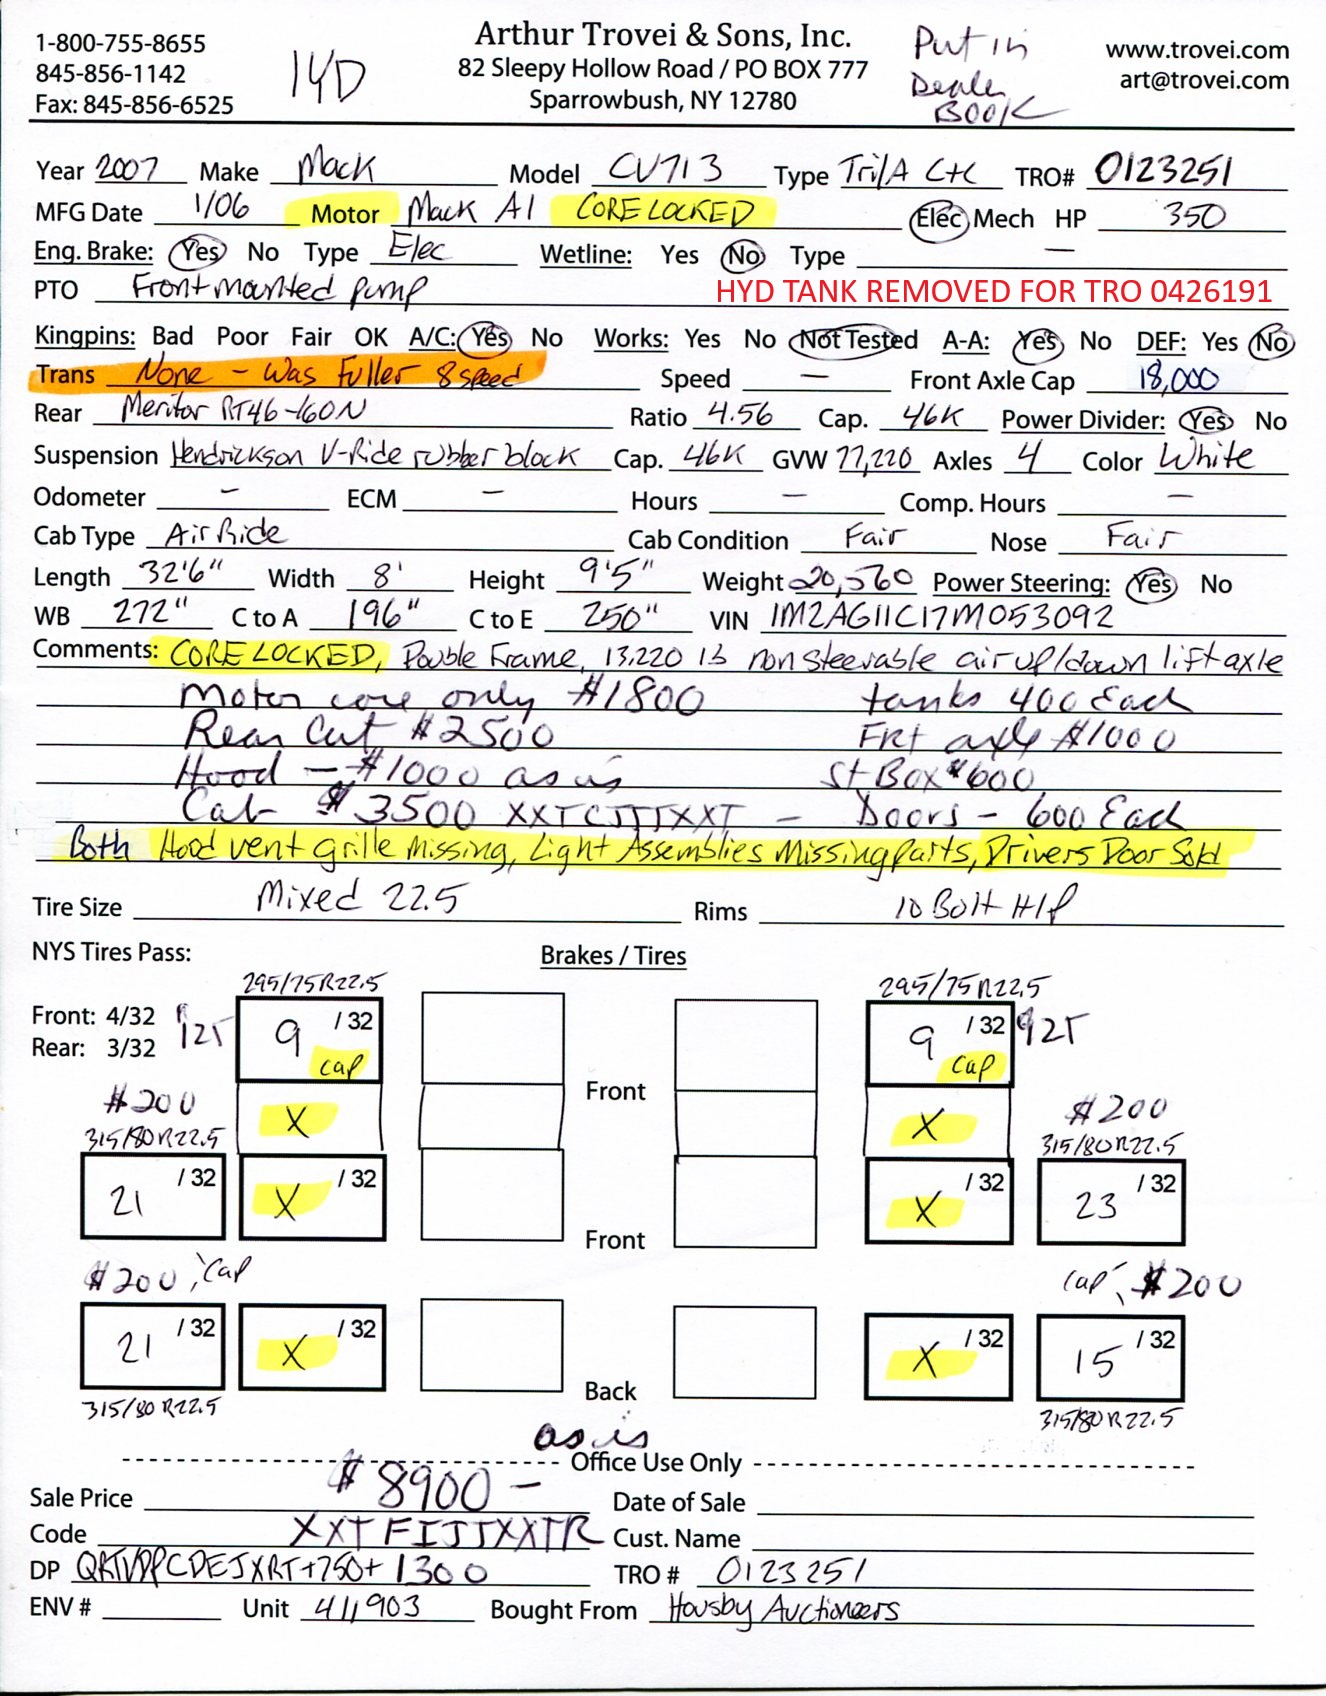 1-800-755-8655
845-856-1142
Fax: 845-856-6525
1YD
Arthur Trovei & Sons, Inc.
82 Sleepy Hollow Road / PO BOX 777
Sparrowbush, NY 12780
Put in
Dealer
BOOK
www.trovei.com
art@trovei.com
Year 2007 Make Mack Model CV713 Type Tri/A C+C TRO# 0123251
MFG Date 1/06 Motor Mack AI CORE LOCKED Elec Mech HP 350
Eng. Brake: Yes No Type Elec Wetline: Yes No Type —
PTO Front mounted pump HYD TANK REMOVED FOR TRO 0426191
Kingpins: Bad Poor Fair OK A/C: Yes No Works: Yes No Not Tested A-A: Yes No DEF: Yes No
Trans None - Was Fuller 8 speed Speed — Front Axle Cap 18,000
Rear Meritor RT46-160N Ratio 4.56 Cap. 46K Power Divider: Yes No
Suspension Hendrickson V-Ride rubber block Cap. 46K GVW 77,220 Axles 4 Color White
Odometer — ECM — Hours — Comp. Hours —
Cab Type Air Ride Cab Condition Fair Nose Fair
Length 32'6" Width 8' Height 9'5" Weight 20,560 Power Steering: Yes No
WB 272" C to A 196" C to E 250" VIN 1M2AG11C17M053092
Comments: CORE LOCKED, Double Frame, 13,220 lb non steerable air up/down lift axle
Motor core only $1800 tanks 400 Each
Rear Cut $2500 FRT axle $1000
Hood - $1000 as is St Box $600
Cab $3500 XXTCJTTXXT - Doors - 600 Each
Both Hood vent grille missing, Light Assemblies Missing parts, Drivers Door Sold
Tire Size Mixed 22.5 Rims 10 Bolt H/P
NYS Tires Pass: Brakes / Tires
295/75R22.5 295/75R22.5
Front: 4/32 125 9 /32 cap 9 /32 cap 125
Rear: 3/32
Front
$200 X X $200
315/80R22.5 315/80R22.5
21 /32 X /32 X /32 23 /32
Front
$200 , Cap cap, $200
21 /32 X /32 X /32 15 /32
Back
315/80R22.5 315/80R22.5
as is
Office Use Only
Sale Price $8900 - Date of Sale
Code XXTFIJTXXTR Cust. Name
DP +750+1300 TRO # 0123251
ENV # Unit 411903 Bought From Housby Auctioneers